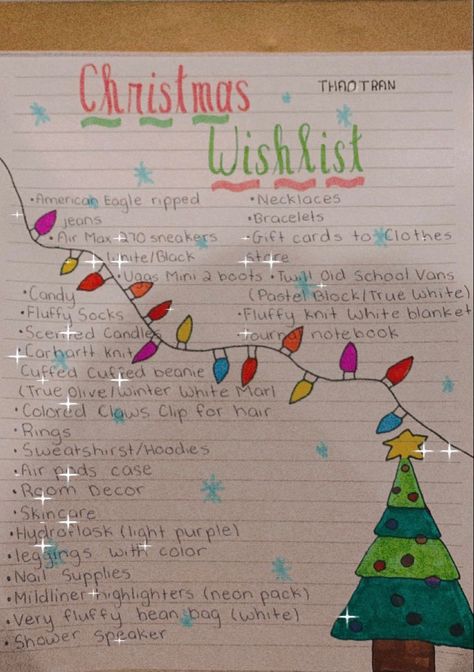 Christmas
THAO TRAN
Wishlist
•American Eagle ripped
jeans
•Air Max 270 sneakers
White/Black
•Uggs Mini 2 boots
•Candy
•Fluffy Socks
•Scented Candles
•Carhartt knit
Cuffed Cuffed beanie
(True Olive/Winter White Marl
•Colored Claws Clip for hair
•Rings
•Sweatshirst/Hoodies
•Air pods case
•Room Decor
•Skincare
•Hydroflask (light purple)
•leggings with color
•Nail Supplies
•Mildliner highlighters (neon pack)
•Very fluffy bean bag (white)
•Shower speaker
•Necklaces
•Bracelets
•Gift cards to Clothes
store
•Twill Old School Vans
(Pastel Block/True White)
•Fluffy knit white blanket
Journal notebook